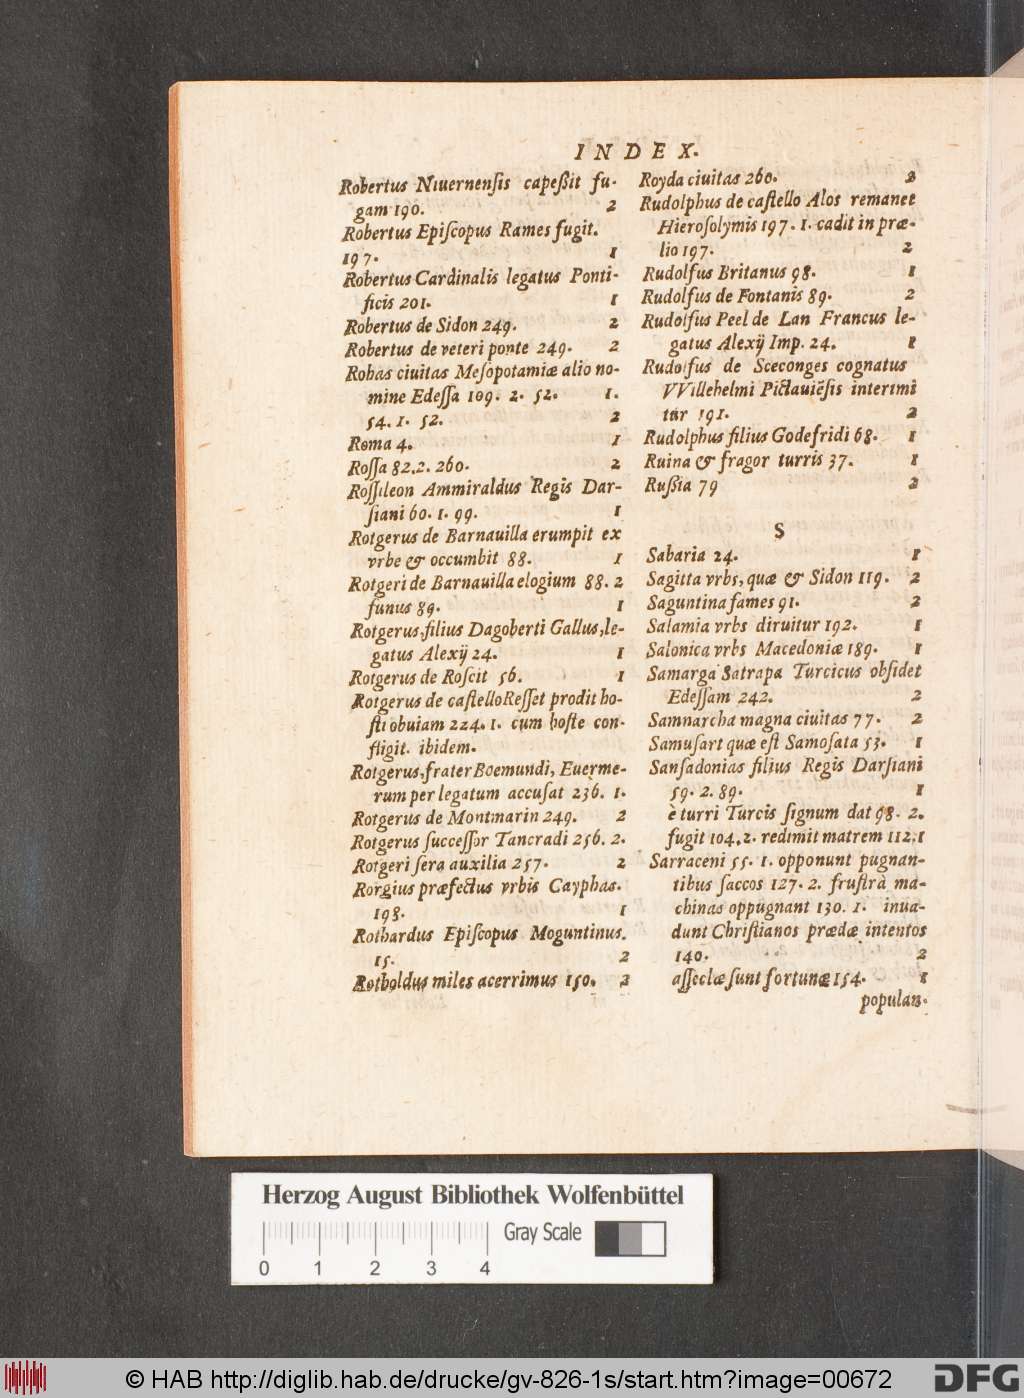 INDEX.
Robertus Niuernenſis capeßit fu-
gam 190. 2
Robertus Epiſcopus Rames fugit.
197. 1
Robertus Cardinalis legatus Ponti-
ficis 201. 1
Robertus de Sidon 249. 2
Robertus de veteri ponte 249. 2
Rohas ciuitas Meſopotamiæ alio no-
mine Edeſſa 109. 2. 52. 1.
54. 1. 52. 2
Roma 4. 1
Roſſa 82.2. 260. 2
Roſſileon Ammiraldus Regis Dar-
ſiani 60. 1. 99. 1
Rotgerus de Barnauilla erumpit ex
vrbe & occumbit 88. 1
Rotgeri de Barnauilla elogium 88. 2
funus 89. 1
Rotgerus, filius Dagoberti Gallus, le-
gatus Alexij 24. 1
Rotgerus de Roſcit 56. 1
Rotgerus de caſtello Reſſet prodit ho-
ſti obuiam 224. 1. cum hoſte con-
fligit. ibidem.
Rotgerus, frater Boemundi, Euerme-
rum per legatum accuſat 236. 1.
Rotgerus de Montmarin 249. 2
Rotgerus ſucceſſor Tancradi 256. 2.
Rotgeri ſera auxilia 257. 2
Rorgius præfectus vrbis Cayphas.
198. 1
Rothardus Epiſcopus Moguntinus.
15. 2
Rotholdus miles acerrimus 150. 2
Royda ciuitas 260. 2
Rudolphus de caſtello Alos remanet
Hieroſolymis 197. 1. cadit in præ-
lio 197. 2
Rudolfus Britanus 98. 1
Rudolfus de Fontanis 89. 2
Rudolfus Peel de Lan Francus le-
gatus Alexij Imp. 24. 1
Rudolfus de Sceconges cognatus
VVillehelmi Pictauiẽſis interimi
tur 191. 2
Rudolphus filius Godefridi 68. 1
Ruina & fragor turris 37. 1
Rußia 79 2
S
Sabaria 24. 1
Sagitta vrbs, quæ & Sidon 119. 2
Saguntina fames 91. 2
Salamia vrbs diruitur 192. 1
Salonica vrbs Macedoniæ 189. 1
Samarga Satrapa Turcicus obſidet
Edeſſam 242. 2
Samnarcha magna ciuitas 77. 2
Samuſart quæ eſt Samoſata 53. 1
Sanſadonias filius Regis Darſiani
59. 2. 89. 1
è turri Turcis ſignum dat 98. 2.
fugit 104. 2. redimit matrem 112. 1
Sarraceni 55. 1. opponunt pugnan-
tibus ſaccos 127. 2. fruſtrà ma-
chinas oppugnant 130. 1. inua-
dunt Chriſtianos prædæ intentos
140. 2
aſſeclæ ſunt fortunæ 154. 1
populan-
Herzog August Bibliothek Wolfenbüttel
Gray Scale
0 1 2 3 4
© HAB http://diglib.hab.de/drucke/gv-826-1s/start.htm?image=00672
DFG